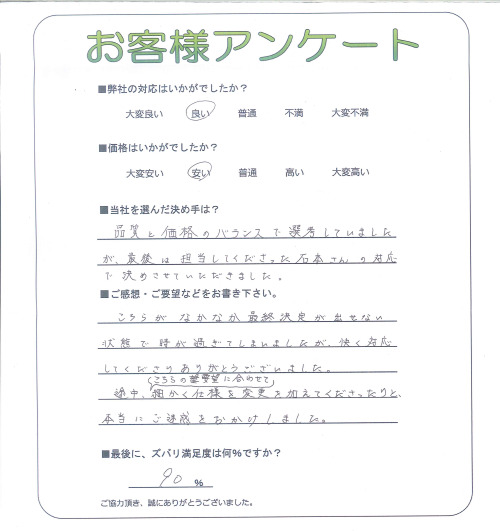 お客様アンケート
■弊社の対応はいかがでしたか？
大変良い 良い 普通 不満 大変不満
■価格はいかがでしたか？
大変安い 安い 普通 高い 大変高い
■当社を選んだ決め手は？
品質と価格のバランスで選考していました
が、最後は担当してくださった石本さんの対応
で決めさせていただきました。
■ご感想・ご要望などをお書き下さい。
こちらがなかなか最終決定が出せない
状態で時が過ぎてしまいましたが、快く対応
してくださりありがとうございました。
こちらの要望に合わせて
途中、細かく仕様を変更を加えてくださったりと、
本当にご迷惑をおかけしました。
■最後に、ズバリ満足度は何%ですか？
90 %
ご協力頂き、誠にありがとうございました。